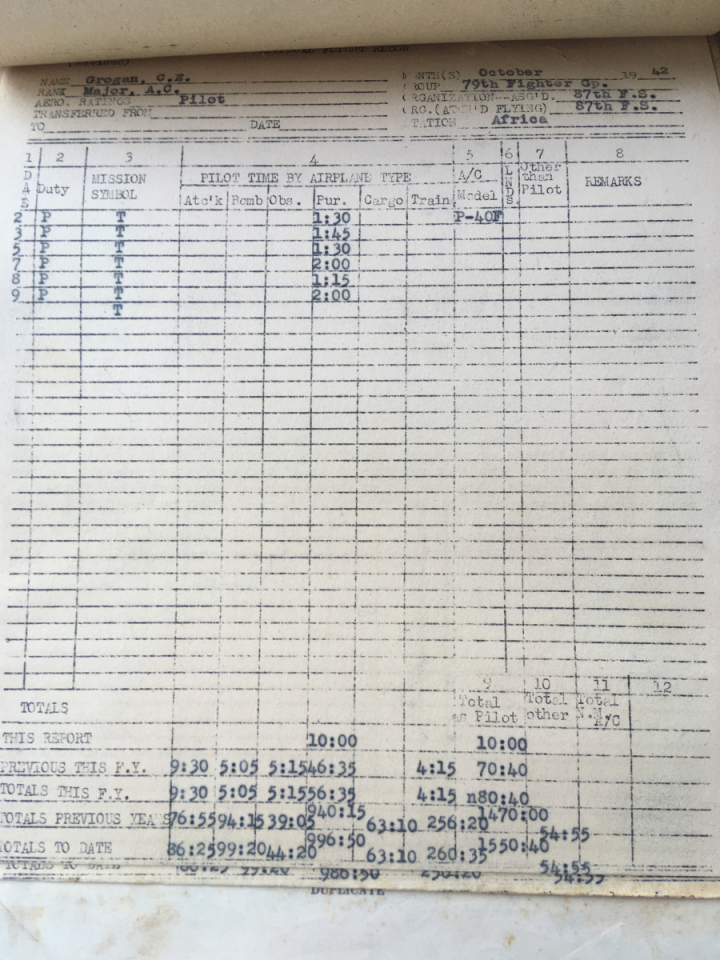 FLIGHT RECOR
NAME Grogan, C.E. MONTH(S) October 19 42
RANK Major, A.C. GROUP 79th Fighter Gp.
AERO. RATINGS Pilot ORGANIZATION--ASG'D. 87th F.S.
TRANSFERRED FROM ORG.(AT 'D FLYING) 87th F.S.
TO DATE STATION Africa
1 2 3 4 5 6 7 8
DATE Duty MISSION SYMBOL PILOT TIME BY AIRPLANE TYPE A/C Model LNDS. Other than Pilot REMARKS
Atc'k Bomb Obs. Pur. Cargo Train
2 P T 1:30 P-40F
3 P T 1:45
5 P T 1:30
7 P T 2:00
8 P T 1:15
9 P T 2:00
T
9 10 11 12
TOTALS Total as Pilot Total other Total N.M. A/C
THIS REPORT 10:00 10:00
PREVIOUS THIS F.Y. 9:30 5:05 5:15 46:35 4:15 70:40
TOTALS THIS F.Y. 9:30 5:05 5:15 56:35 4:15 n80:40
TOTALS PREVIOUS YEARS 76:55 94:15 39:05 940:15 63:10 256:20 1470:00 54:55
TOTALS TO DATE 86:25 99:20 44:20 996:50 63:10 260:35 1550:40 54:55
986:50 54:55
DUPLICATE